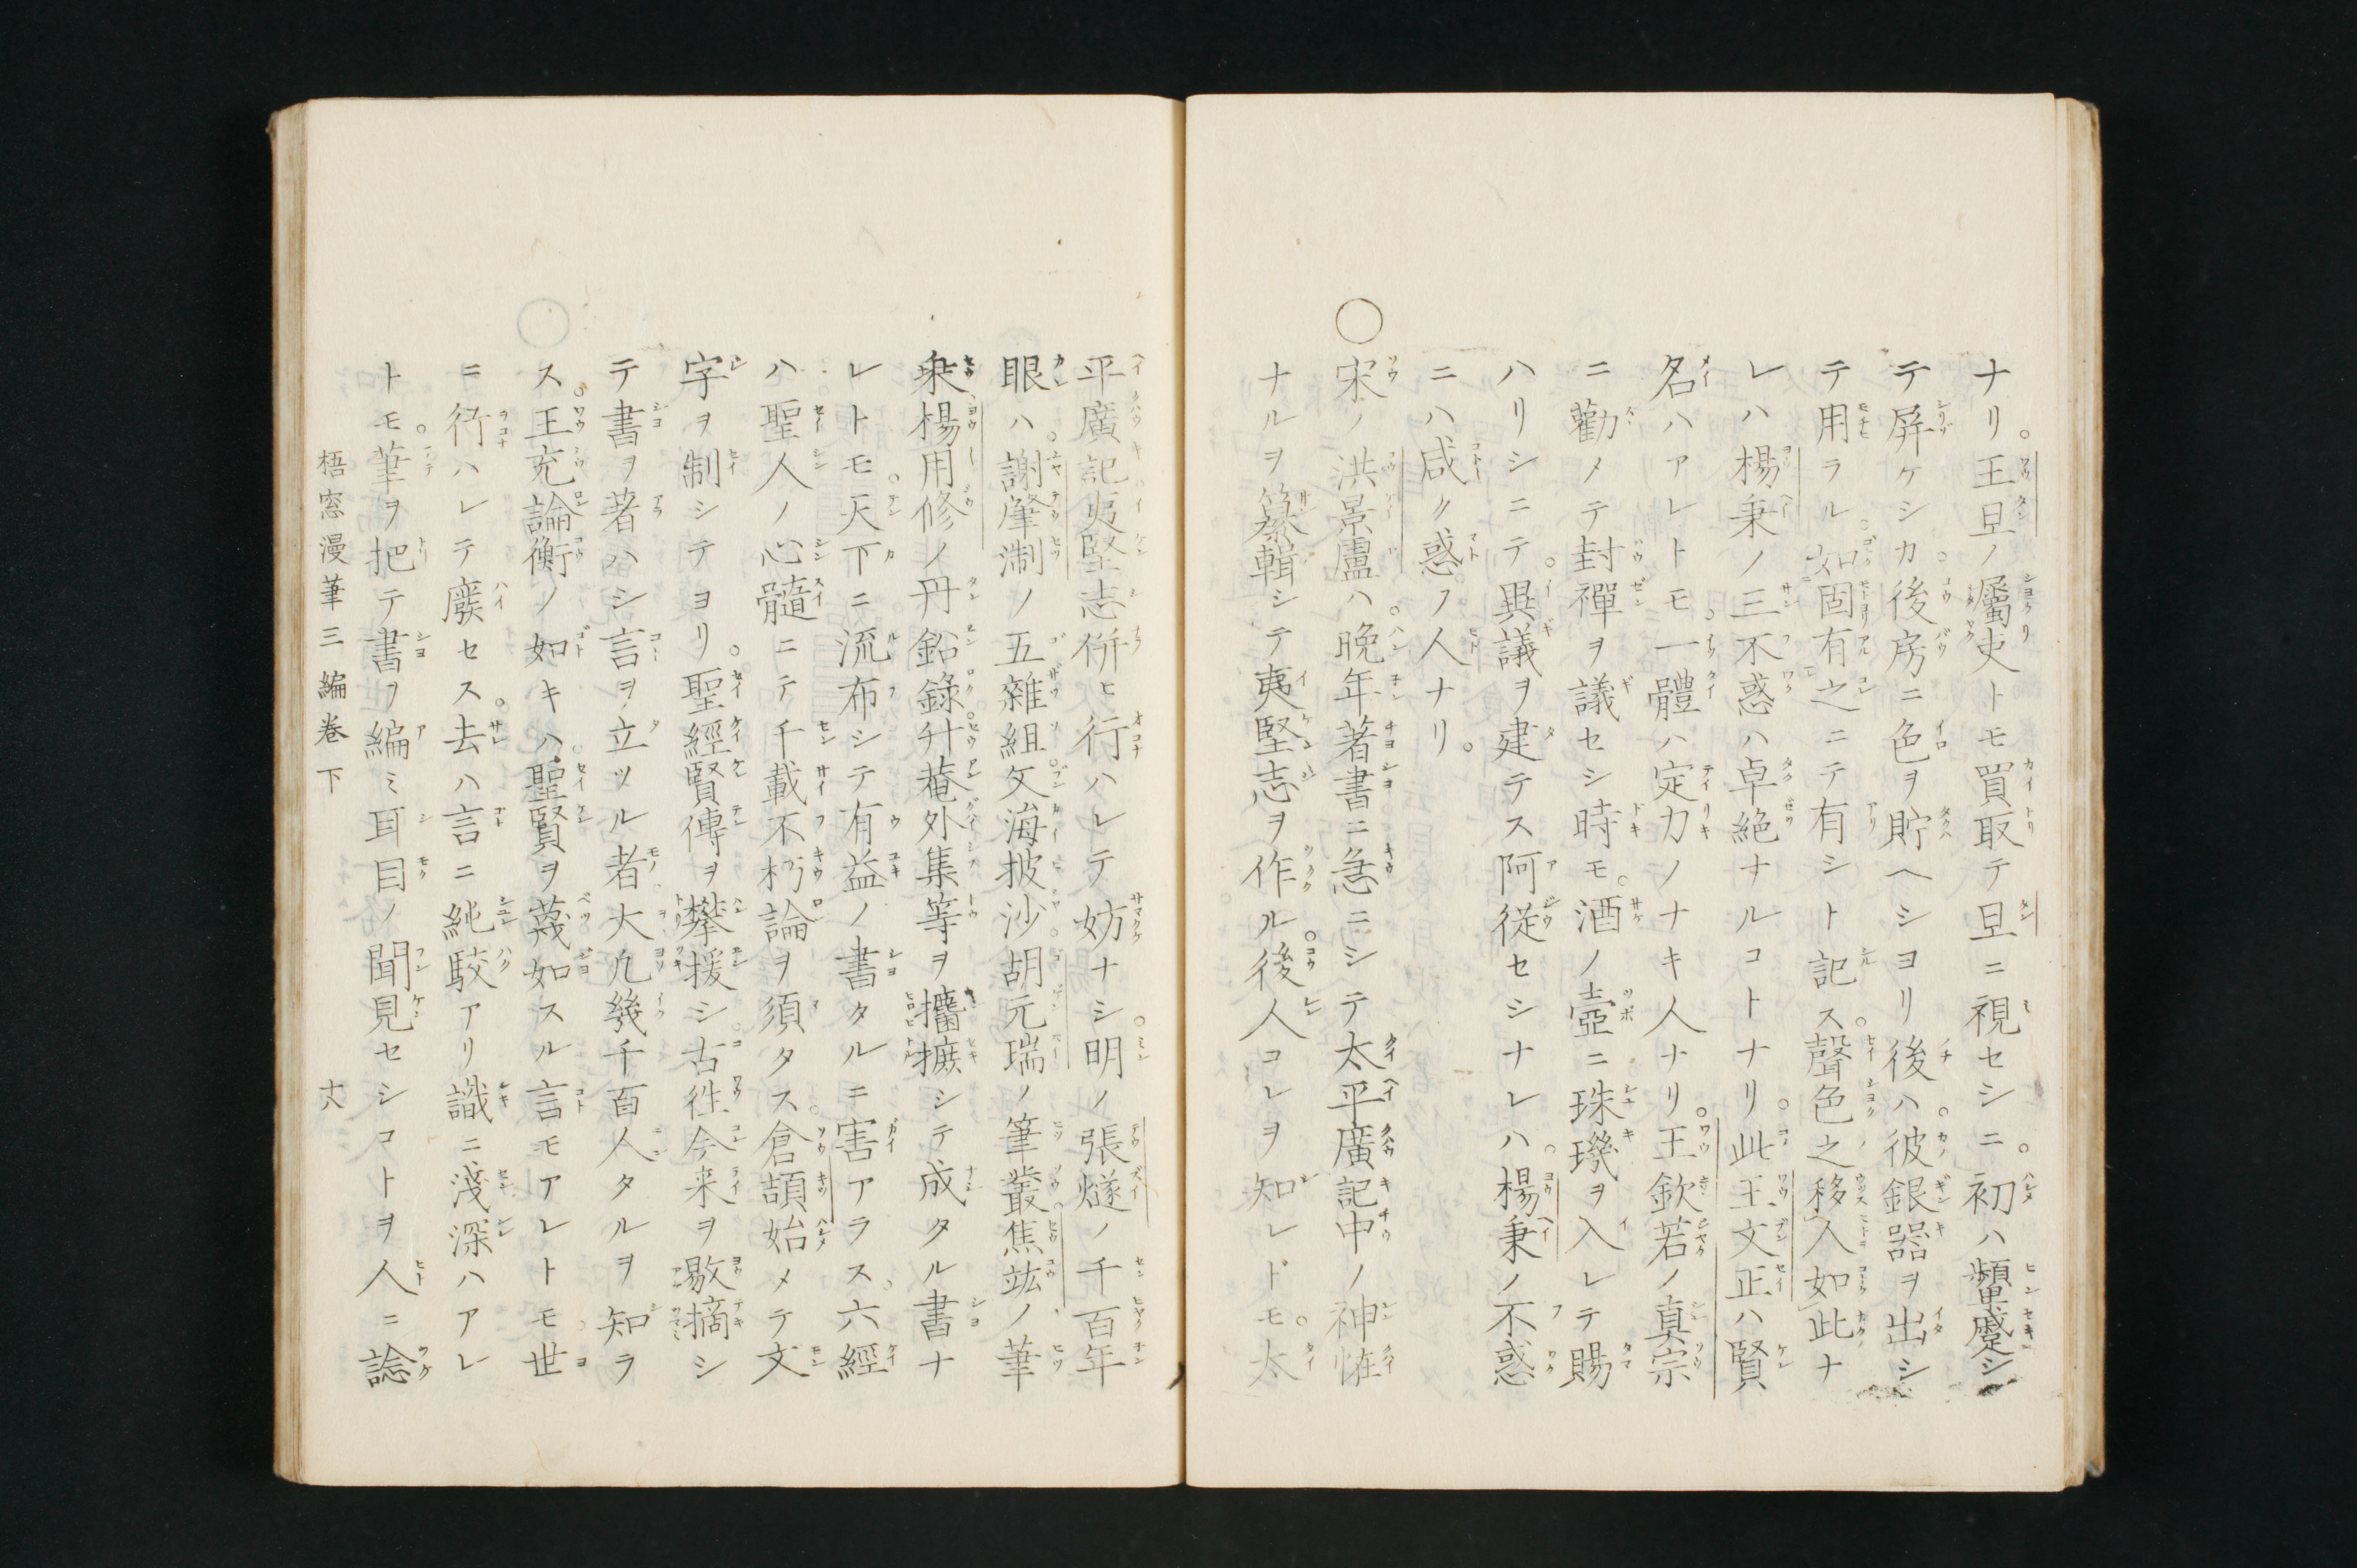 ナリ。王旦ノ屬吏トモ買取テ旦ニ視セシニ。初ハ顰蹙シ
テ屏ケシカ。後房ニ色ヲ貯ヘシヨリ後ハ。彼銀器ヲ出シ
テ用ラル。如固有之ニテ有シト記ス。聲色之移人如此ナ
レハ楊秉ノ三不惑ハ卓絶ナルコトナリ。此王文正ハ賢
名ハアレトモ。一體ハ定力ノナキ人ナリ。王欽若ノ真宗
ニ勸メテ封禪ヲ議セシ時モ。酒ノ壺ニ珠璣ヲ入レテ賜
ハリシニテ。異議ヲ建テス阿從セシナレハ。楊秉ノ不惑
ニハ咸ク惑フ人ナリ。
○宋ノ洪景盧ハ。晩年著書ニ急ニシテ太平廣記中ノ神怪
ナルヲ纂輯シテ夷堅志ヲ作ル。後人コレヲ知レドモ。太
平廣記夷堅志併ヒ行ハレテ妨ナシ。明ノ張燧ノ千百年
眼ハ。謝肇淛ノ五雜組。文海披沙。胡元瑞ノ筆叢。焦竑ノ筆
乗。楊用修ノ丹鉛錄。升菴外集等ヲ攟摭シテ成タル書ナ
レトモ。天下ニ流布シテ有益ノ書タルニ害アラス。六經
ハ聖人ノ心髓ニテ千載不朽論ヲ須タス。倉頡始メテ文
字ヲ制シテヨリ。聖經賢傳ヲ攀援シ。古徃今来ヲ敭摘シ
テ書ヲ著ハシ言ヲ立ツル者大凡幾千百人タルヲ知ラ
ス。王充論衡ノ如キハ。聖賢ヲ蔑如スル言モアレトモ。世
ニ行ハレテ廢セス。去ハ言ニ純駁アリ識ニ淺深ハアレ
トモ。筆ヲ把テ書ヲ編ミ耳目ノ聞見セシコトヲ人ニ諗
梧窓漫筆三編巻下 十八